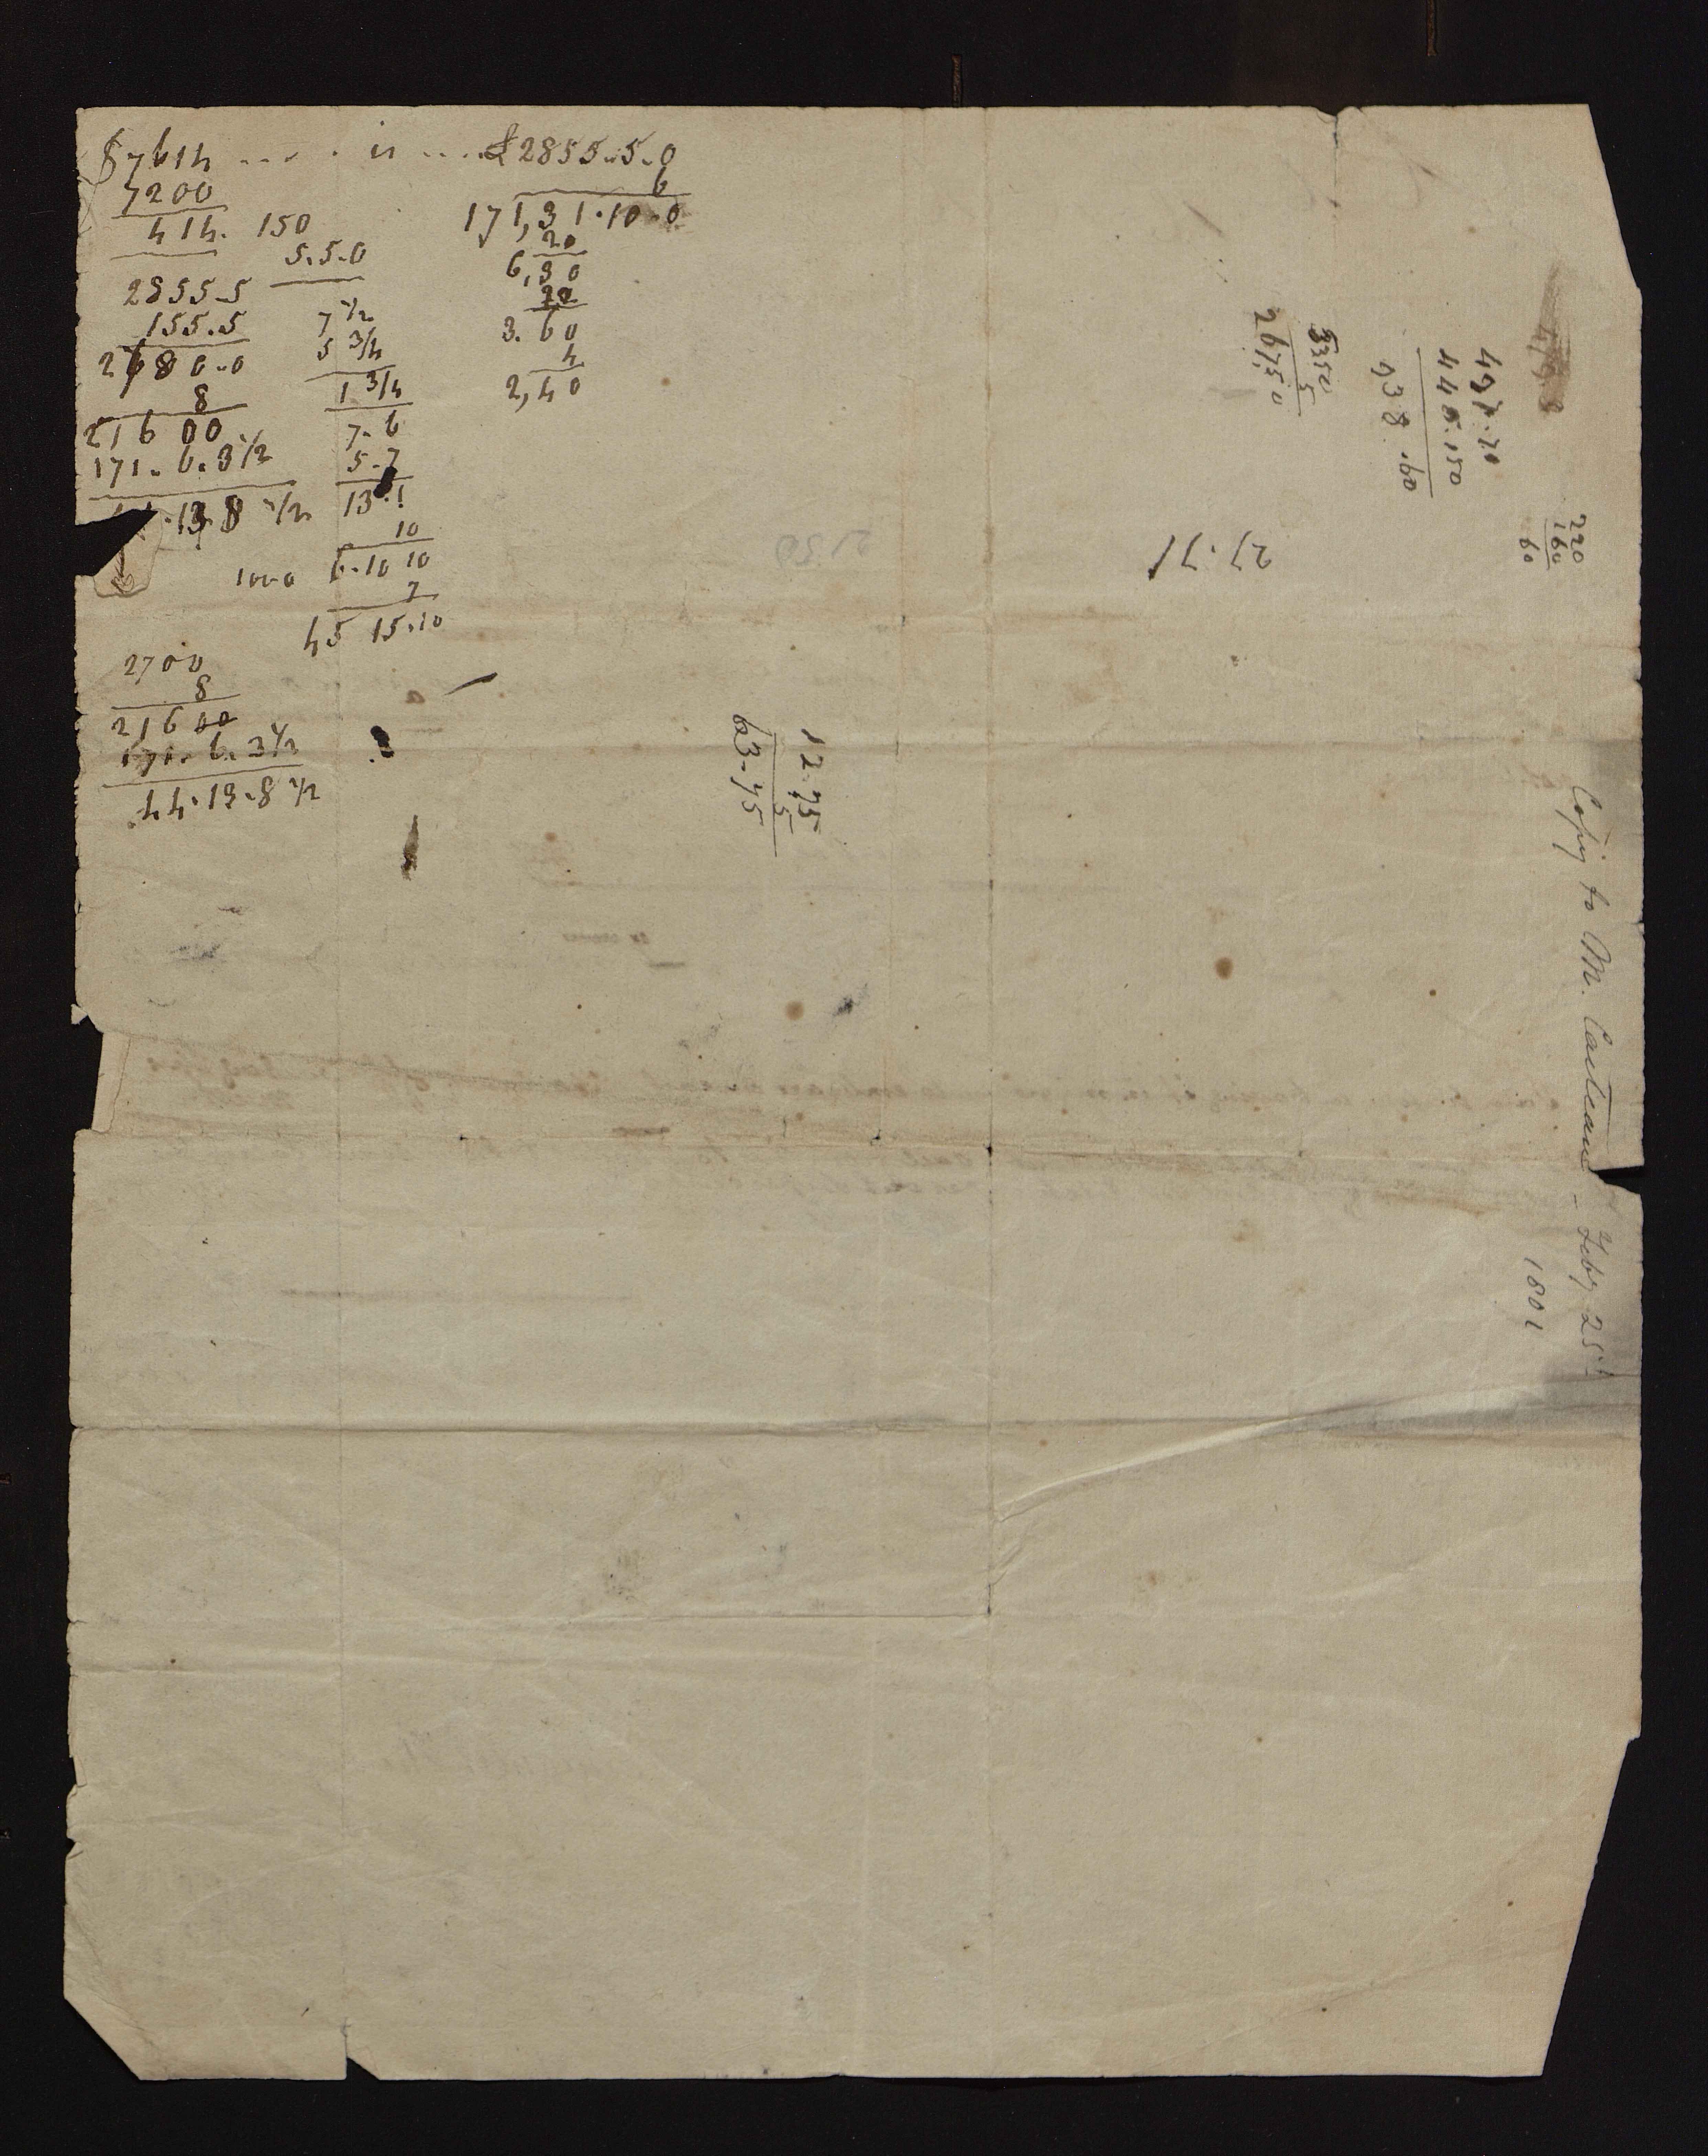 $7614 ... . is ... £2855..5..0
7200
414. 150
5.5.0
2855-5
155.5
2680..0
8
21600
171. 6. 3 1/2
.13.8 1/2
7 1/2
5 3/4
1 3/4
7-6
5-7
13.1
10
6-10 10
7
45 15.10
6
171,31.10..0
20
6,30
12
3.60
4
2,40
2700
8
21600
171. 6. 3 1/2
44.13.8 1/2
12.75
5
63.75
27.71
5350
5
26750
446.150
938.60
220
160
60
Copy to M. Casteau - Feby 25th
1801